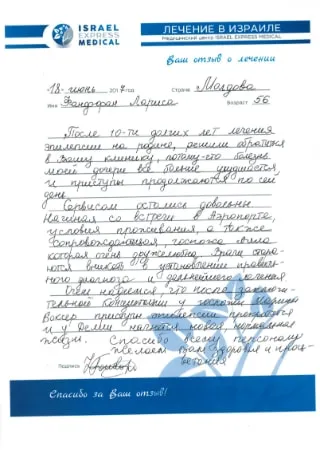 ISRAEL
EXPRESS
MEDICAL
ЛЕЧЕНИЕ В ИЗРАИЛЕ
МЕДИЦИНСКИЙ ЦЕНТР ISRAEL EXPRESS MEDICAL
Ваш отзыв о лечении
18 июнь 2017 год Страна Молдова
Имя Лариса Возраст 56
После 10-ти долгих лет лечения
эпилепсии на родине, решили обратится
в Вашу клинику, потому-что болезнь
моей дочери все больше ухудшается,
и приступы продолжаются по сей
день.
Сервисом остались довольны.
Начиная со встречи в Аэропорте,
условия проживания, а также
сопровождающая, госпожа
которая очень дружелюбна. Врачи стара-
ются вникать в установлении правиль-
ного диагноза и дальнейшего лечения
Очем надеемся, что после заключи-
тельной консультации у госпожи Марина
приступы эпилепсии прекратятся
и у начнется новая, нормальная
жизнь. Спасибо всему персоналу
Желаем Вам здоровья и процв-
ветания
Подпись
Спасибо за Ваш отзыв!